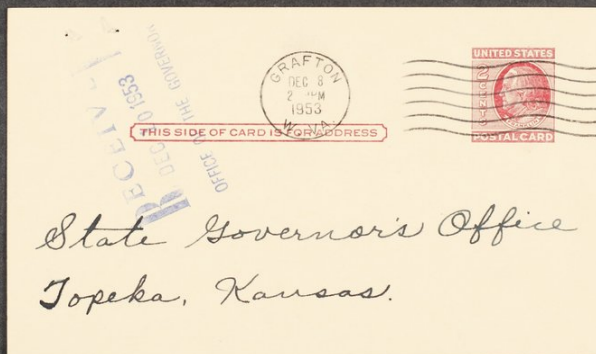 RECEIVED
DEC 10 1953
OFFICE OF THE GOVERNOR
GRAFTON
DEC 8
2 PM
1953
W. VA.
UNITED STATES
2 CENTS
POSTAL CARD
THIS SIDE OF CARD IS FOR ADDRESS
State Governor's Office
Topeka, Kansas.